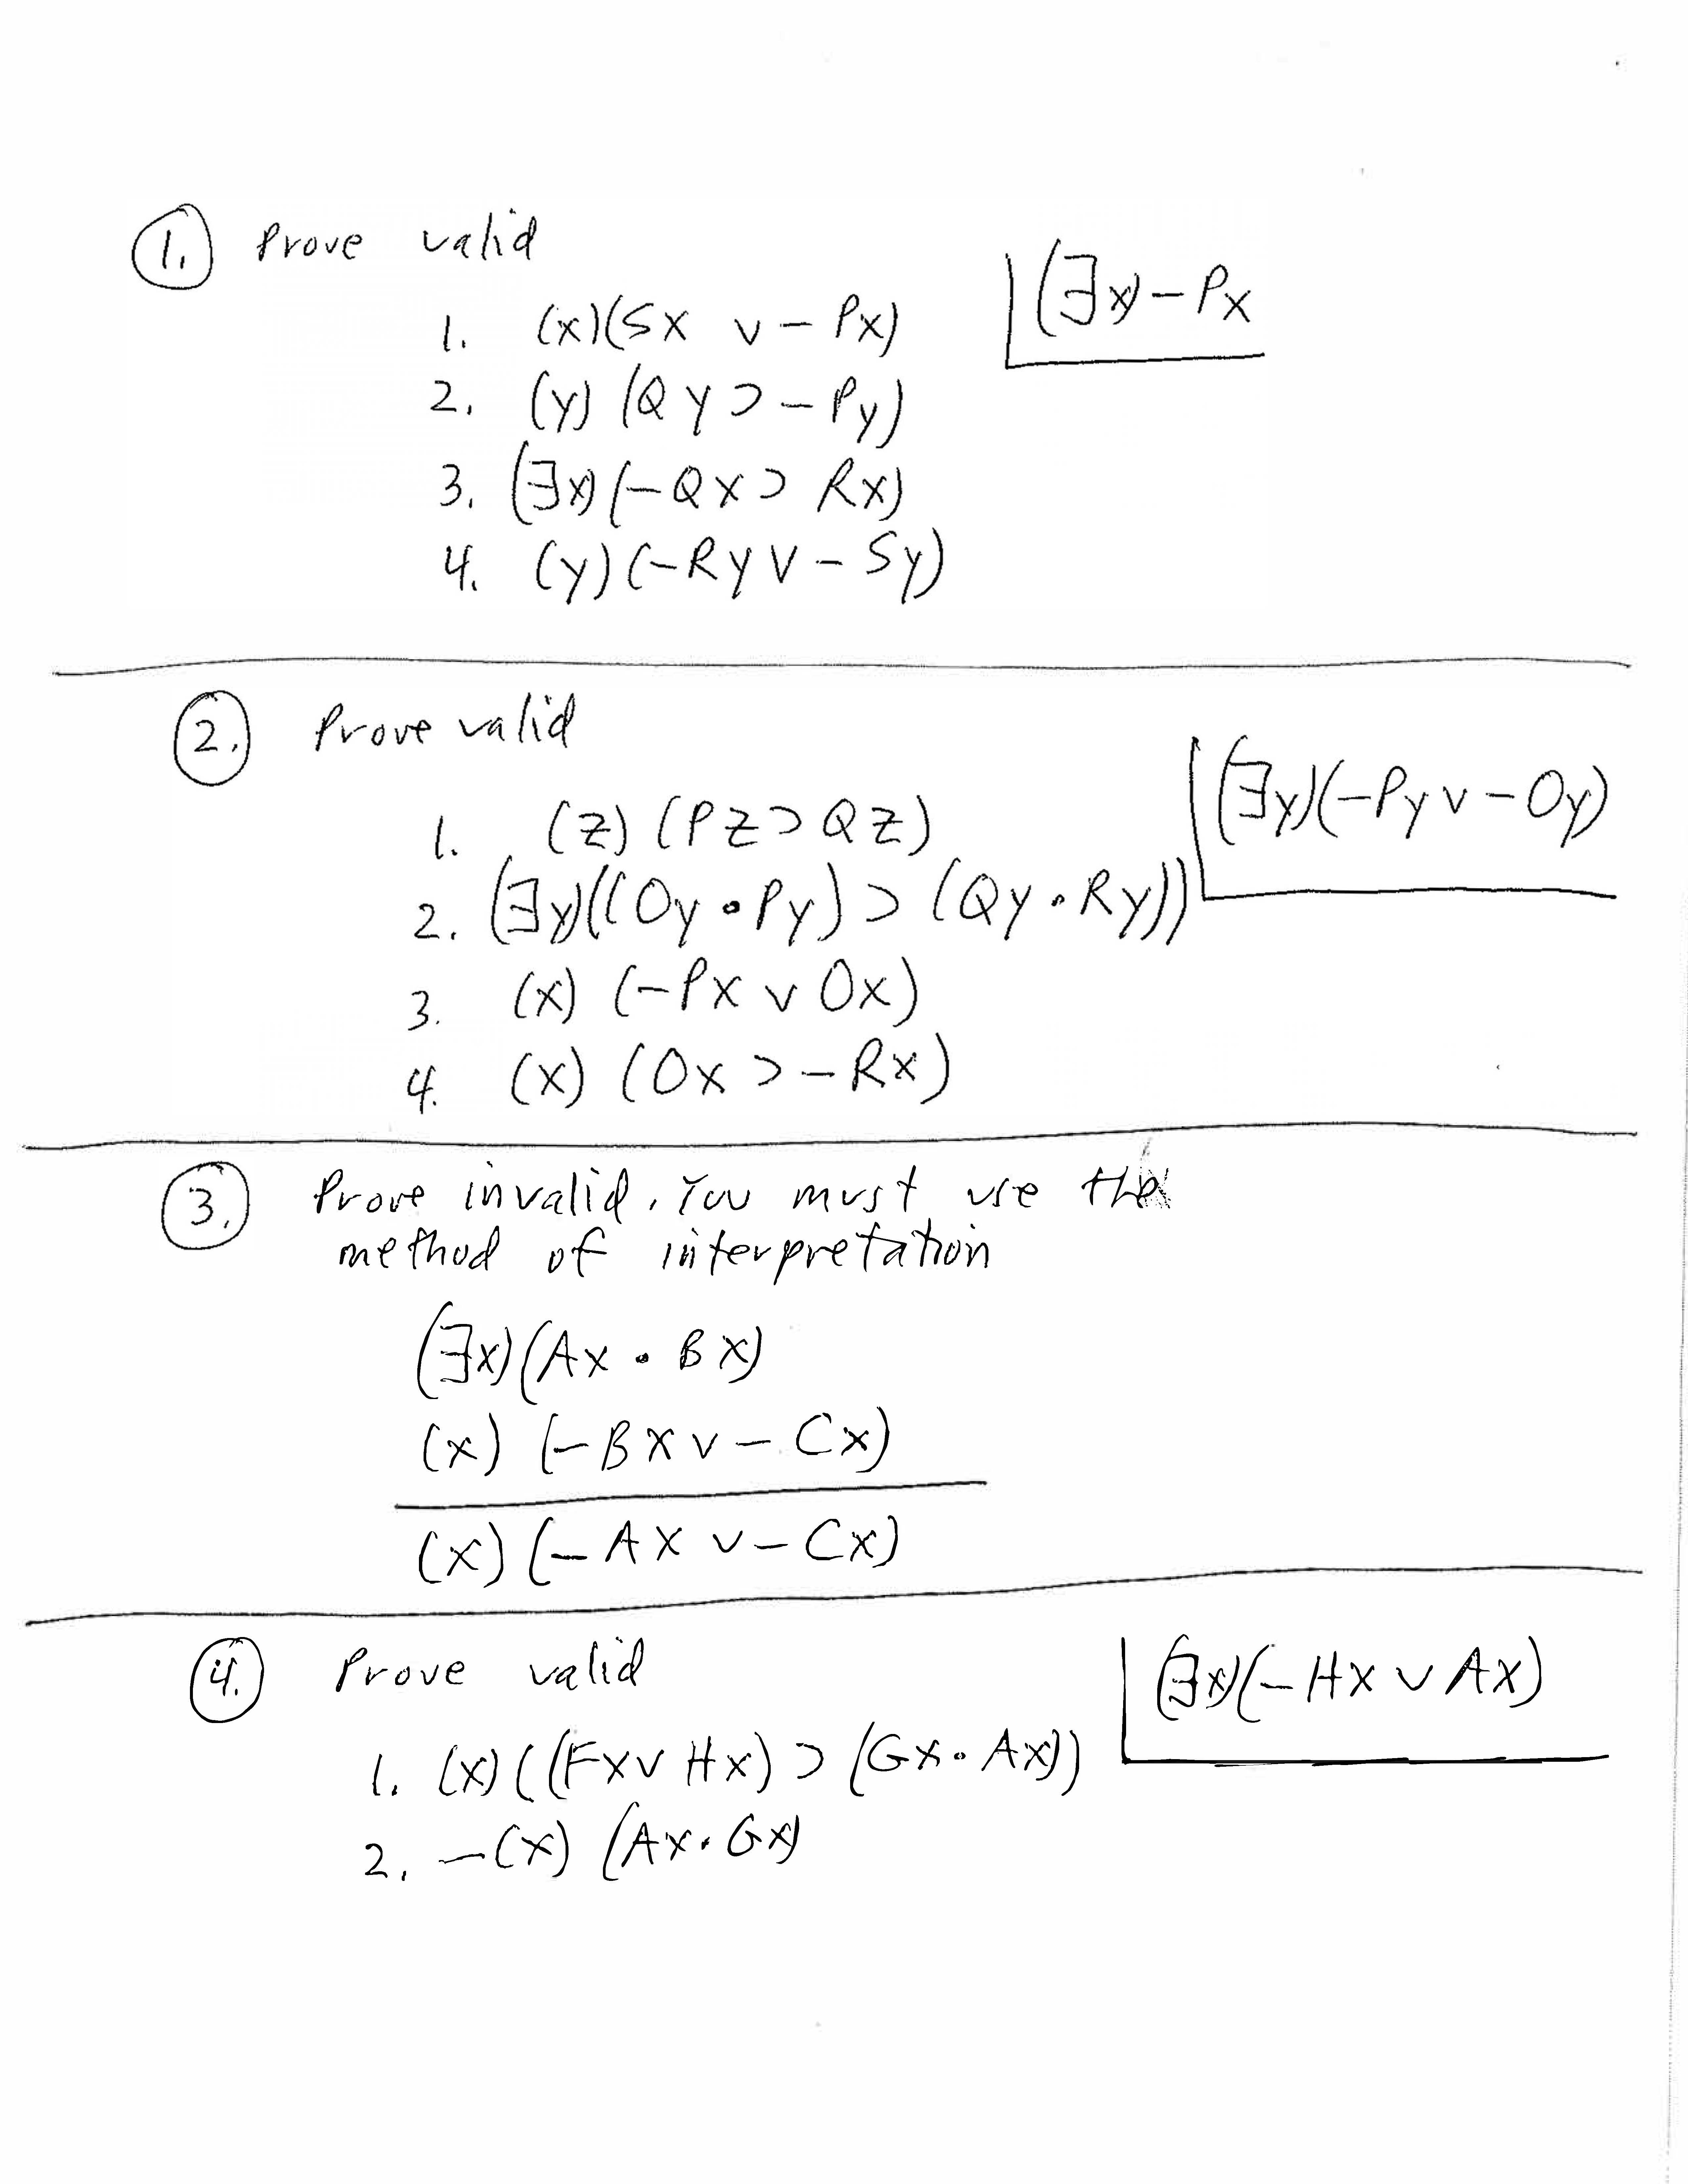 1. Prove valid
1. (x)(Sx v - Px) (∃x) - Px
2. (y) (Qy ⊃ - Py)
3. (∃x)(-Qx ⊃ Rx)
4. (y)(-Ry v - Sy)
2. Prove valid
(∃y)(-Py v - Oy)
1. (z) (Pz ⊃ Qz)
2. (∃y)((Oy • Py) ⊃ (Qy • Ry))
3. (x) (-Px v Ox)
4. (x) (Ox ⊃ - Rx)
3. Prove invalid. You must use the
method of interpretation
(∃x)(Ax • Bx)
(x) (-Bx v - Cx)
(x) (- Ax v - Cx)
4. Prove valid (∃x)(- Hx v Ax)
1. (x) ((Fx v Hx) ⊃ (Gx • Ax))
2. -(x) (Ax • Gx)